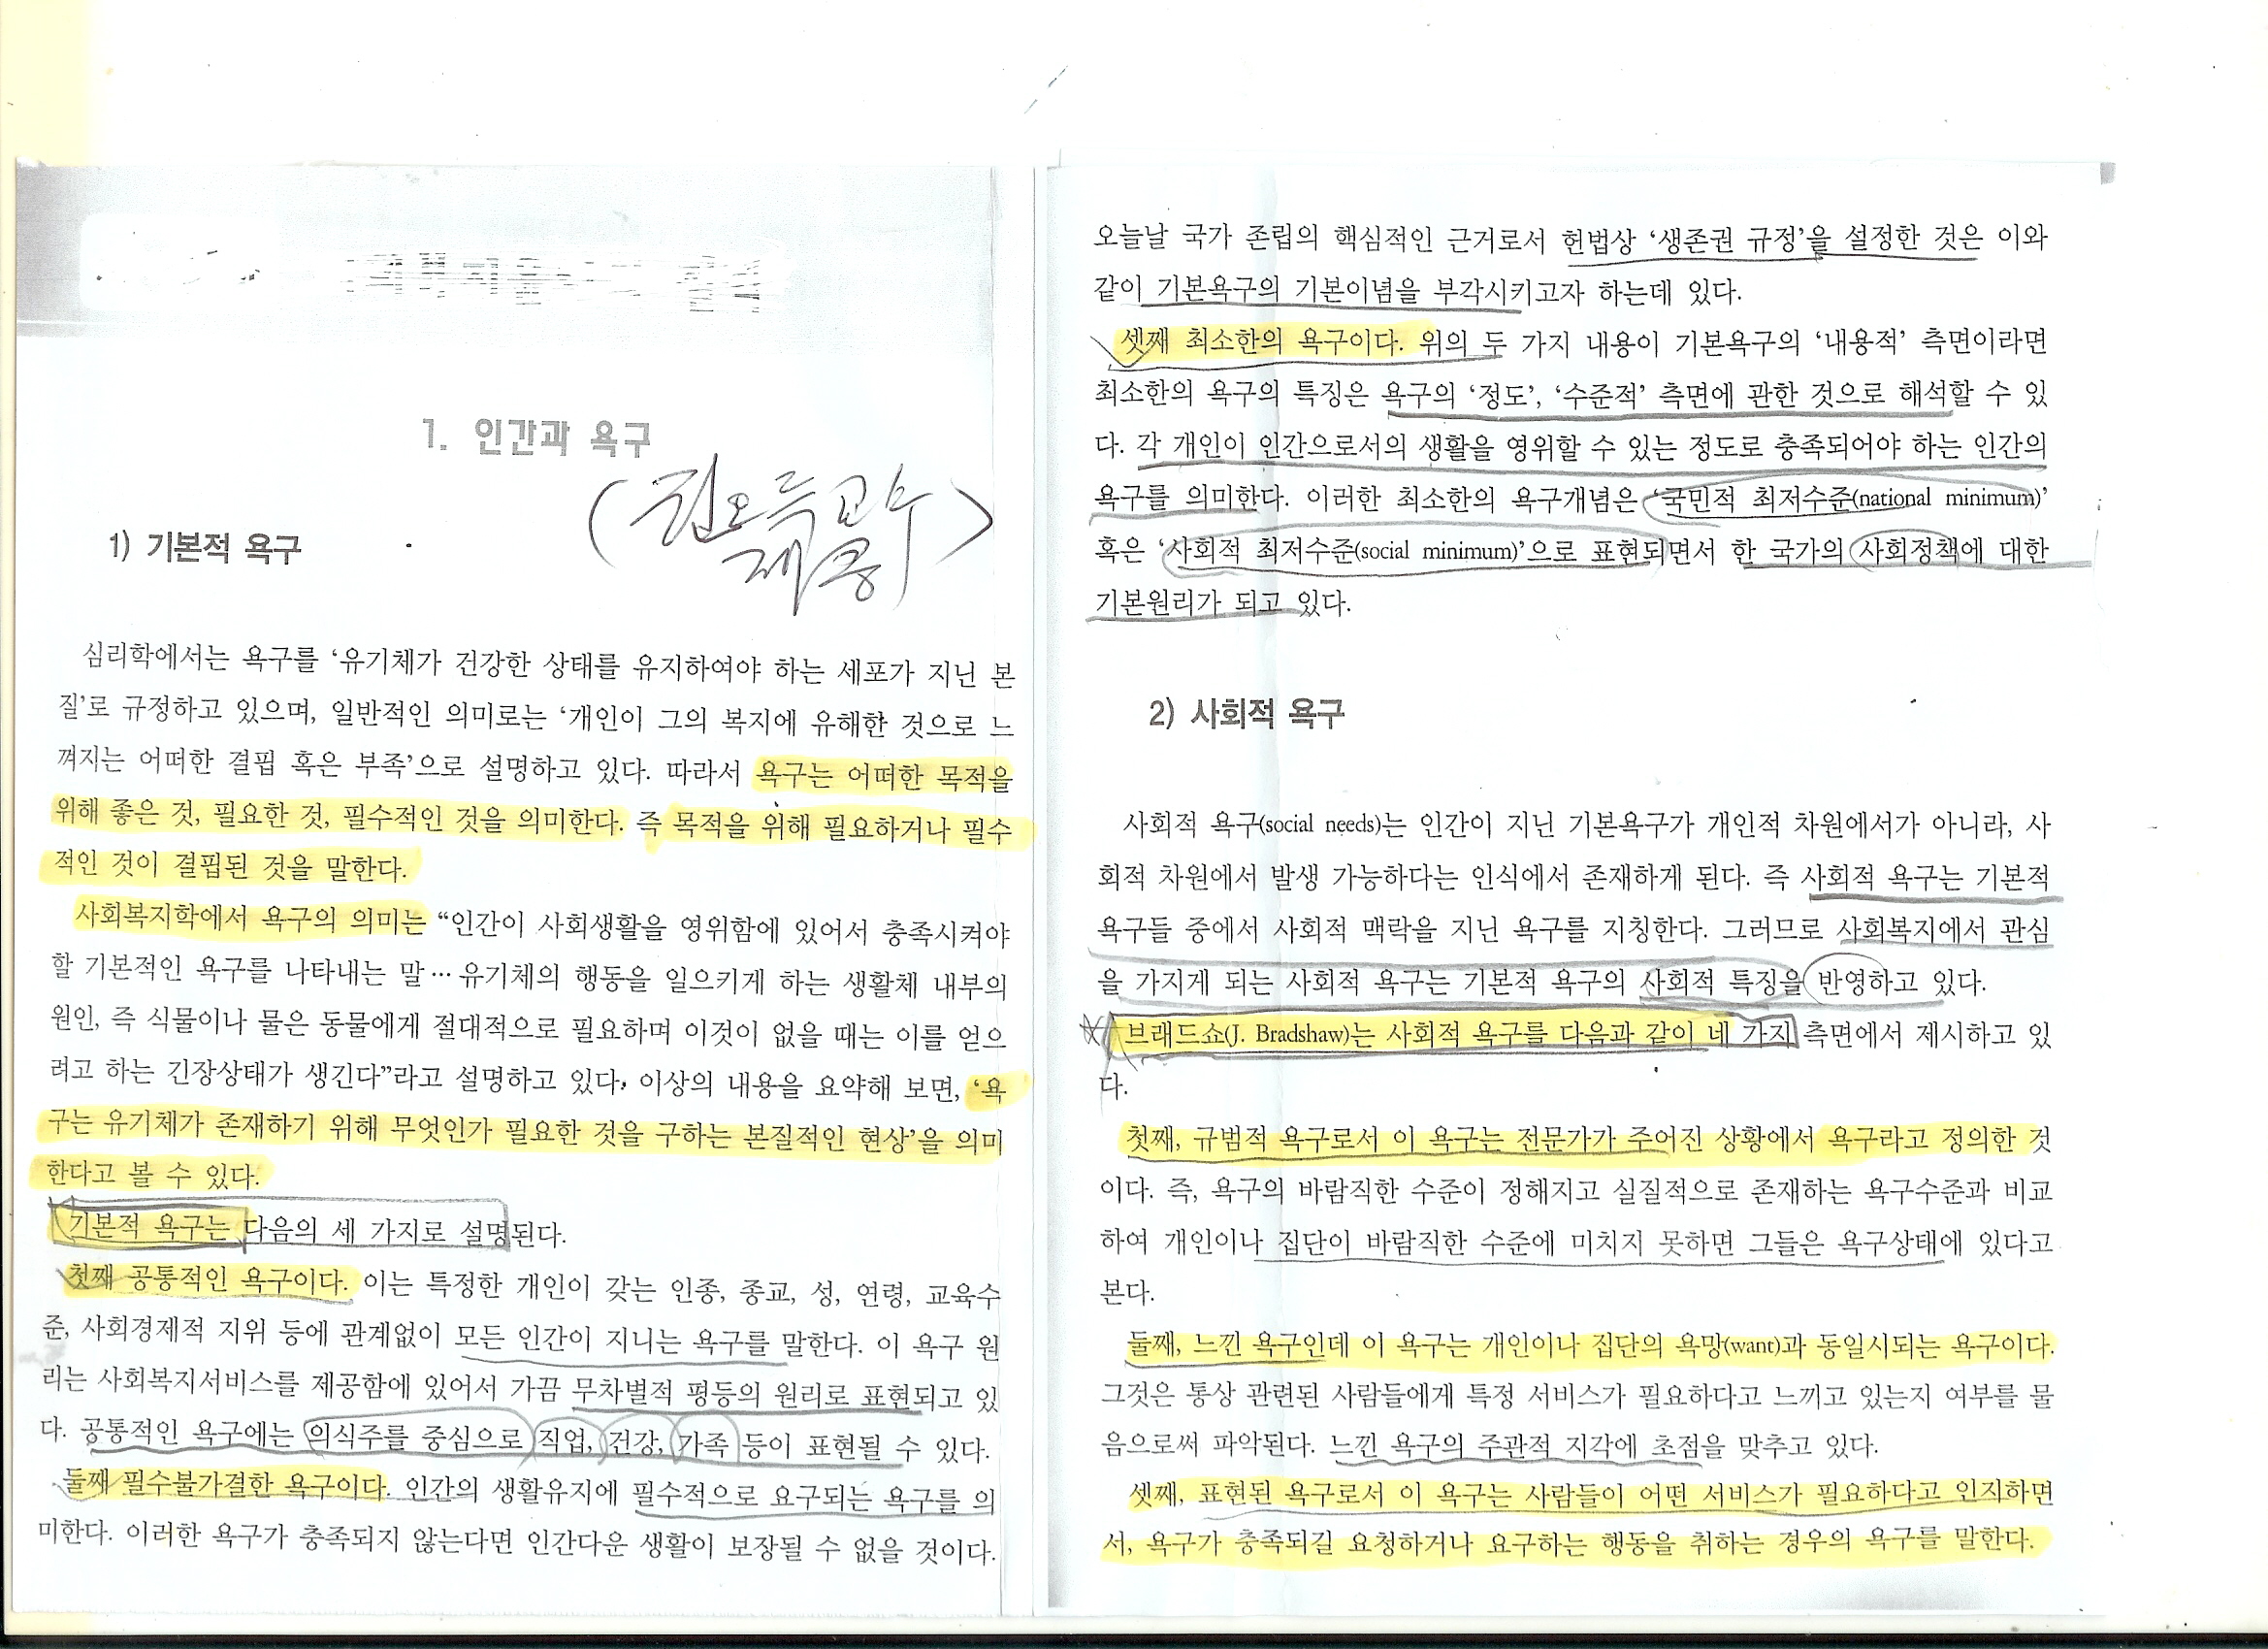 1. 인간과 욕구
제공
1) 기본적 욕구
심리학에서는 욕구를 ‘유기체가 건강한 상태를 유지하여야 하는 세포가 지닌 본
질’로 규정하고 있으며, 일반적인 의미로는 ‘개인이 그의 복지에 유해한 것으로 느
껴지는 어떠한 결핍 혹은 부족’으로 설명하고 있다. 따라서 욕구는 어떠한 목적을
위해 좋은 것, 필요한 것, 필수적인 것을 의미한다. 즉 목적을 위해 필요하거나 필수
적인 것이 결핍된 것을 말한다.
사회복지학에서 욕구의 의미는 “인간이 사회생활을 영위함에 있어서 충족시켜야
할 기본적인 욕구를 나타내는 말… 유기체의 행동을 일으키게 하는 생활체 내부의
원인, 즉 식물이나 물은 동물에게 절대적으로 필요하며 이것이 없을 때는 이를 얻으
려고 하는 긴장상태가 생긴다”라고 설명하고 있다. 이상의 내용을 요약해 보면, ‘욕
구는 유기체가 존재하기 위해 무엇인가 필요한 것을 구하는 본질적인 현상’을 의미
한다고 볼 수 있다.
기본적 욕구는 다음의 세 가지로 설명된다.
첫째 공통적인 욕구이다. 이는 특정한 개인이 갖는 인종, 종교, 성, 연령, 교육수
준, 사회경제적 지위 등에 관계없이 모든 인간이 지니는 욕구를 말한다. 이 욕구 원
리는 사회복지서비스를 제공함에 있어서 가끔 무차별적 평등의 원리로 표현되고 있
다. 공통적인 욕구에는 의식주를 중심으로 직업, 건강, 가족 등이 표현될 수 있다.
둘째 필수불가결한 욕구이다. 인간의 생활유지에 필수적으로 요구되는 욕구를 의
미한다. 이러한 욕구가 충족되지 않는다면 인간다운 생활이 보장될 수 없을 것이다.
오늘날 국가 존립의 핵심적인 근거로서 헌법상 ‘생존권 규정’을 설정한 것은 이와
같이 기본욕구의 기본이념을 부각시키고자 하는데 있다.
셋째 최소한의 욕구이다. 위의 두 가지 내용이 기본욕구의 ‘내용적’ 측면이라면
최소한의 욕구의 특징은 욕구의 ‘정도’, ‘수준적’ 측면에 관한 것으로 해석할 수 있
다. 각 개인이 인간으로서의 생활을 영위할 수 있는 정도로 충족되어야 하는 인간의
욕구를 의미한다. 이러한 최소한의 욕구개념은 ‘국민적 최저수준(national minimum)’
혹은 ‘사회적 최저수준(social minimum)’으로 표현되면서 한 국가의 사회정책에 대한
기본원리가 되고 있다.
2) 사회적 욕구
사회적 욕구(social needs)는 인간이 지닌 기본욕구가 개인적 차원에서가 아니라, 사
회적 차원에서 발생 가능하다는 인식에서 존재하게 된다. 즉 사회적 욕구는 기본적
욕구들 중에서 사회적 맥락을 지닌 욕구를 지칭한다. 그러므로 사회복지에서 관심
을 가지게 되는 사회적 욕구는 기본적 욕구의 사회적 특징을 반영하고 있다.
브래드쇼(J. Bradshaw)는 사회적 욕구를 다음과 같이 네 가지 측면에서 제시하고 있
다.
첫째, 규범적 욕구로서 이 욕구는 전문가가 주어진 상황에서 욕구라고 정의한 것
이다. 즉, 욕구의 바람직한 수준이 정해지고 실질적으로 존재하는 욕구수준과 비교
하여 개인이나 집단이 바람직한 수준에 미치지 못하면 그들은 욕구상태에 있다고
본다.
둘째, 느낀 욕구인데 이 욕구는 개인이나 집단의 욕망(want)과 동일시되는 욕구이다.
그것은 통상 관련된 사람들에게 특정 서비스가 필요하다고 느끼고 있는지 여부를 물
음으로써 파악된다. 느낀 욕구의 주관적 지각에 초점을 맞추고 있다.
셋째, 표현된 욕구로서 이 욕구는 사람들이 어떤 서비스가 필요하다고 인지하면
서, 욕구가 충족되길 요청하거나 요구하는 행동을 취하는 경우의 욕구를 말한다.